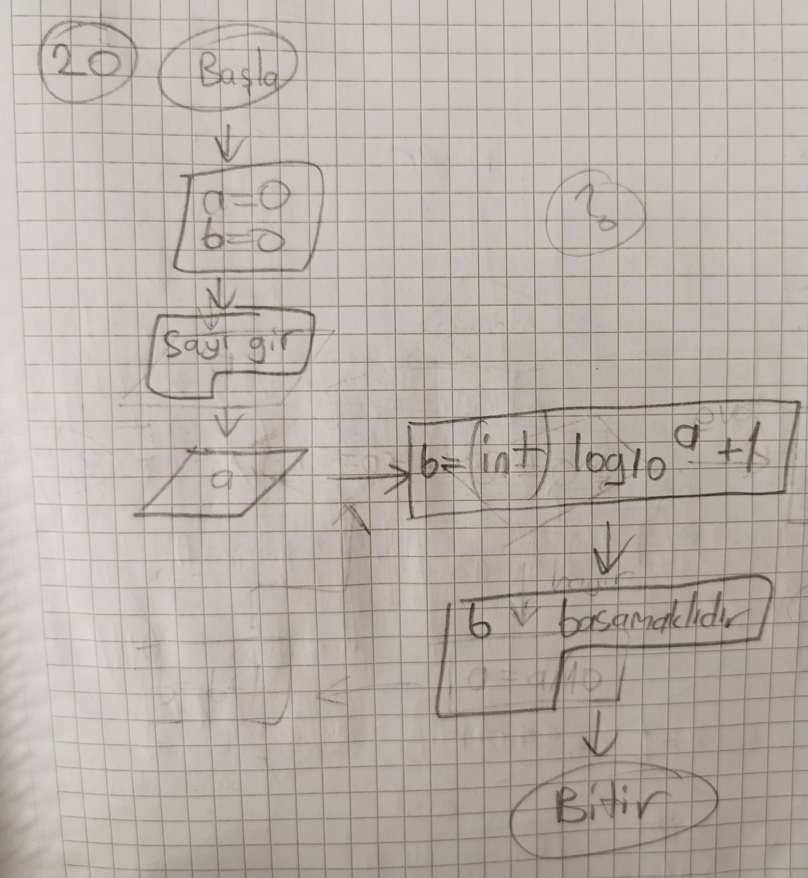 20 Başla
a=0
b=0
Sayı gir
a
b=(int) log10 a +1
b basamaklıdır
a = a/10
Bitir